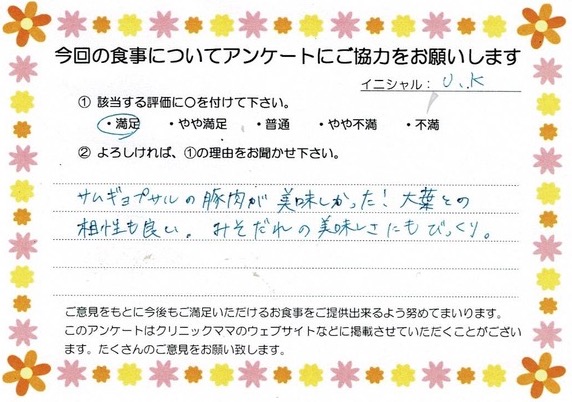 今回の食事についてアンケートにご協力をお願いします
イニシャル： U.K
① 該当する評価に〇を付けて下さい。
・満足 ・やや満足 ・普通 ・やや不満 ・不満
② よろしければ、①の理由をお聞かせ下さい。
サムギョプサルの豚肉が美味しかった！大葉との
相性も良い。みそだれの美味しさにもびっくり。
ご意見をもとに今後もご満足いただけるお食事をご提供出来るよう努めてまいります。
このアンケートはクリニックママのウェブサイトなどに掲載させていただくことがござい
ます。たくさんのご意見をお願い致します。